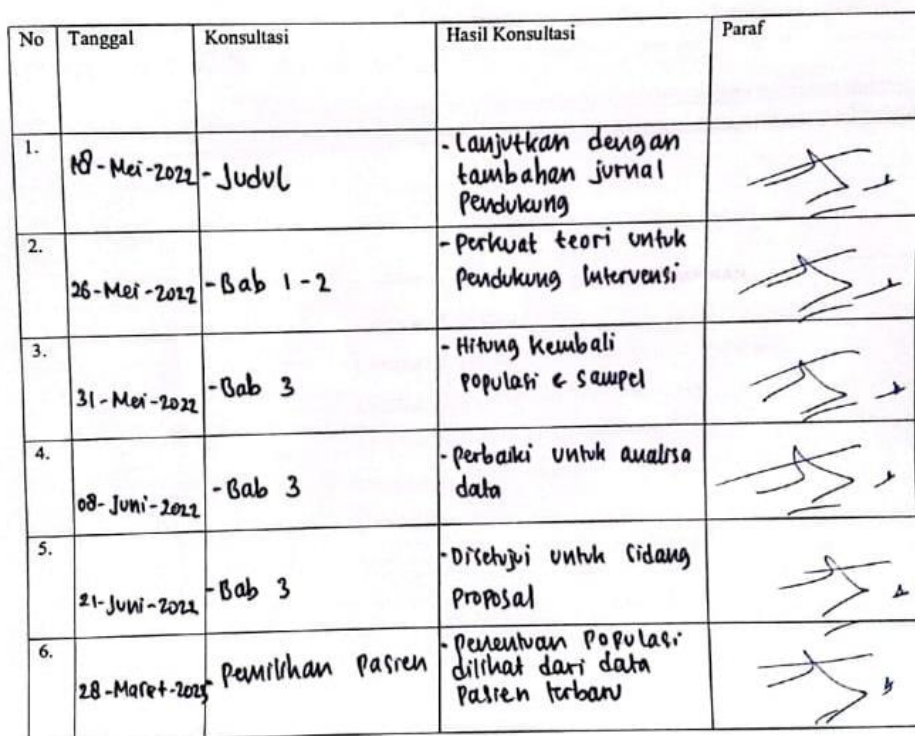 No Tanggal Konsultasi Hasil Konsultasi Paraf
1. 18-Mei-2022 - Judul - Lanjutkan dengan
tambahan jurnal
Pendukung
2. 26-Mei-2022 - Bab 1-2 - Perkuat teori untuk
Pendukung Intervensi
3. 31-Mei-2022 - Bab 3 - Hitung kembali
populasi & sampel
4. 08-Juni-2022 - Bab 3 - Perbaiki untuk analisa
data
5. 21-Juni-2022 - Bab 3 - Disetujui untuk Sidang
Proposal
6. 28-Maret- - Pemilihan Pasien - Penentuan Populasi
dilihat dari data
Pasien terbaru